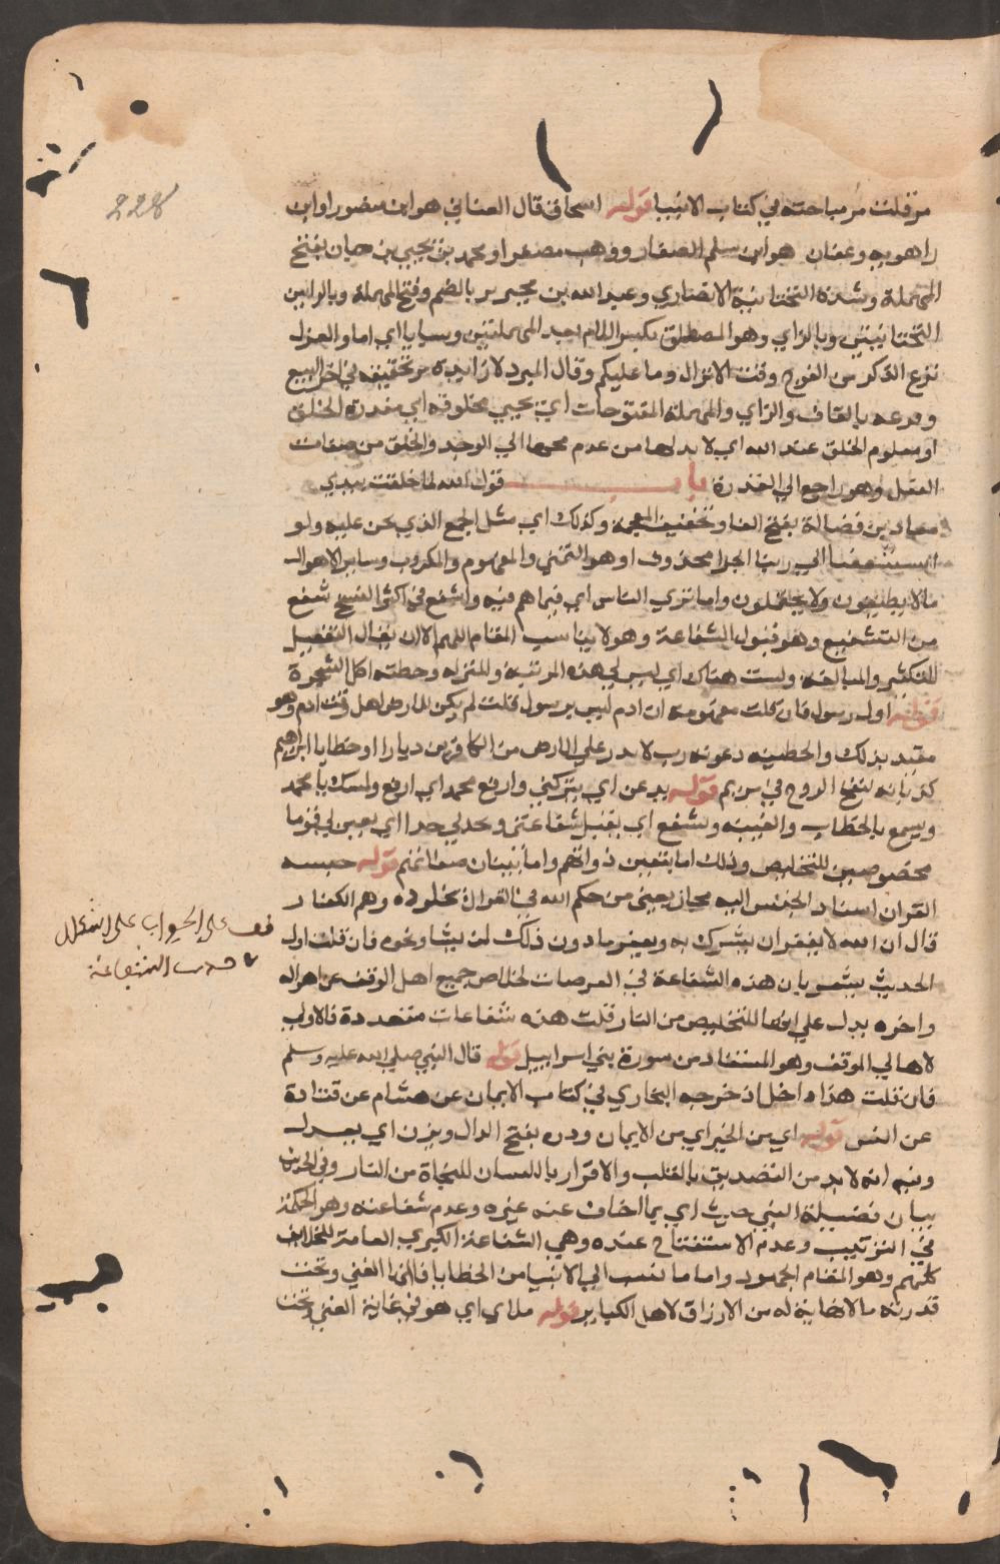 228
مر قلت مر مباحثه في كتاب الانبيا قوله اسحاق قال الغساني هو ابن منصور او ابن
راهويه وعفان هو ابن مسلم الصفار ووهب مصغر او محمد بن يحيي بن حبان بفتح
المهملة وشدة التحتانية الانصاري وعبد الله بن محيريز بالضم وفتح المهملة وبالراء بين
التحتانيتين وبالزاي وهو المصطلق بكسر اللام بعد المهملتين وسبايا اي اماء والعزل
نزع الذكر من الفرج وقت الانزال وما عليكم وقال المبرد لا زايدة مر تحقيقه في اخر البيع
وقزعه بالقاف والزاي والمهملة المفتوحات اي يحيي مخلوقه اي مقدرة الخلق
او معلوم الخلق عند الله اي لا بد لها من عدم مجيها الي الوجود والخلق من صفات
الفعل وهو راجع الي القدرة باب قول الله لما خلقت بيدي
معاذ بن فضالة بفتح الفا وتخفيف المعجمة وكذلك اي مثل الجمع الذي نحن عليه ولو
استشفعنا الي ربنا الجزا محذوف او هو للتمني والمهموم والمكروب وساير الاهوال
مالا يطيقون ولا يحتملون واما تري الناس اي فيما هم فيه واشفع في اكثر النسخ شفع
من التشفيع وهو قبول الشفاعة وهو لا يناسب المقام اللهم الا ان يقال التفعيل
للتكثير والمبالغه ولست هناك اي ليس لي هذه المرتبه والمنزله وخطيته اكل الشجرة
قوله اول رسول فان قلت مفهومه ان ادم ليس برسول قلت لم يكن للارض اهل وقت ادم وهو
مقيد بذلك والخطيه دعوته رب لا تذر علي الارض من الكافرين ديارا او خطايا ابراهيم
كذباته لنفخ الروح في مريم قوله يدعني اي يتركني وارفع محمد اي ارفع راسك يا محمد
ويسمع بالخطاب والغيبه وتشفع اي تقبل شفاعتي وحد لي حدا اي يعين لي قوما
مخصوصين للتخليص وذلك اما بتعيين ذواتهم واما ببيان صفاتهم قوله حبسه
القران اسناد الحبس اليه مجاز يعني من حكم الله في القران بخلوده وهم الكفار
قال ان الله لا يغفر ان يشرك به ويغفر ما دون ذلك لمن يشا ونحوه فان قلت اول
الحديث يشعر بان هذه الشفاعة في العرصات لخلاص جميع اهل الموقف عن اهواله
واخره يدل علي انها للتخليص من النار قلت هذه شفاعات متعددة فالاولي
لاهالي الموقف وهو المستفاد من سورة بني اسراييل قوله قال النبي صلي الله عليه وسلم
فان قلت هذا داخل اذ خرجه البخاري في كتاب الايمان عن هشام عن قتادة
عن انس قوله اي من الخير اي من الايمان وذره بفتح الذال ويزن اي يعدل
وفيه انه لا بد من التصديق بالقلب والاقرار باللسان للنجاة من النار وفي الحديث
بيان فضيلة النبي حيث اي بما خاف عنه غيره وعدم شفاعته وهو الحكمة
في الترتيب وعدم الاستفتاح عنده وهي الشفاعة الكبري العامة للخلايق
كلهم وهو المقام المحمود واما ما نسب الي الانبيا من الخطايا فالي الغني وتحت
قدرته مالا نهاية له من الارزاق لاهل الكباير قوله ملاي اي هو في غاية الغني وتحت
قف علي الجواب علي اشكال
حديث الشفاعة